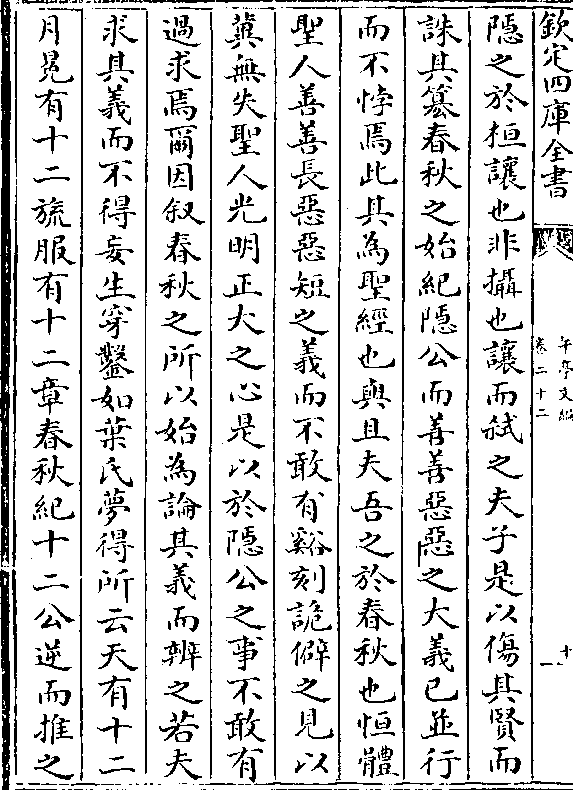 欽定四庫全書
午亭文編
卷二十二
十一
隱之於桓讓也非攝也讓而弑之夫子是以傷其賢而
誅其簒春秋之始紀隱公而善善惡惡之大義已並行
而不悖焉此其為聖經也與且夫吾之於春秋也恒體
聖人善善長惡惡短之義而不敢有谿刻詭僻之見以
冀無失聖人光明正大之心是以於隱公之事不敢有
過求焉爾因叙春秋之所以始為論其義而辨之若夫
求其義而不得妄生穿鑿如葉氏夢得所云天有十二
月冕有十二旒服有十二章春秋紀十二公逆而推之